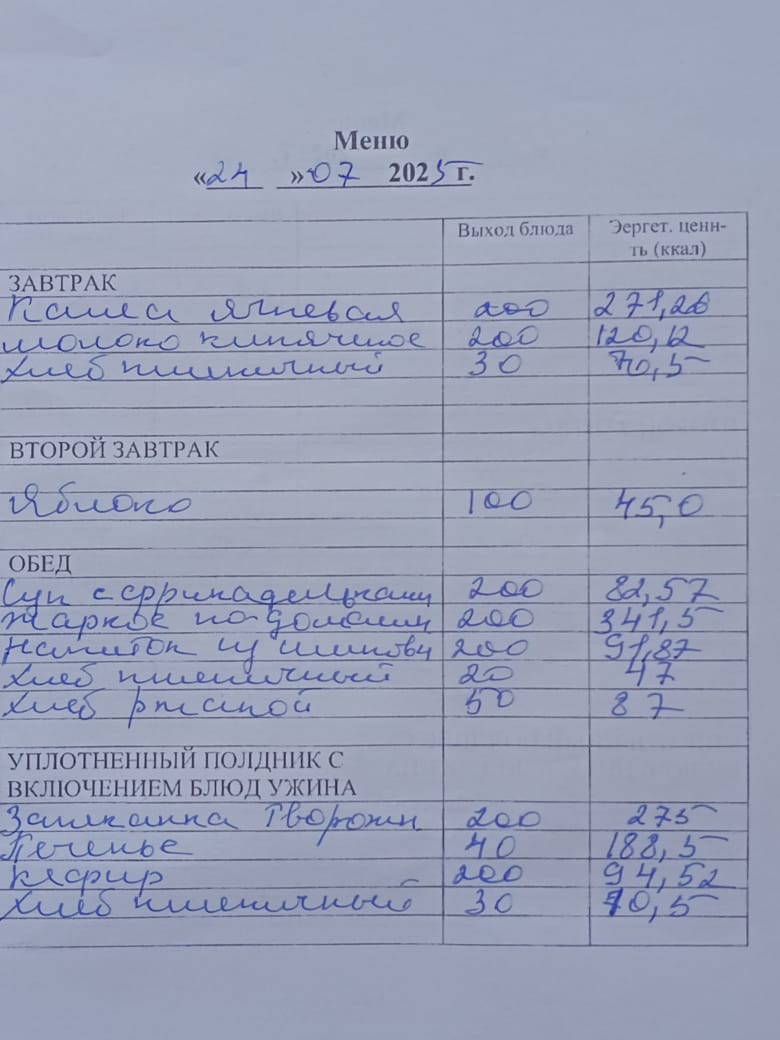 Меню
«24» 07 2025 г.
Выход блюда Эергет. ценн-
ть (ккал)
ЗАВТРАК
Каша ячневая 200 271,26
молоко кипяченое 200 120,12
Хлеб пшеничный 30 70,5
ВТОРОЙ ЗАВТРАК
Яблоко 100 45,0
ОБЕД
Суп с фрикадельками 200 82,57
Жаркое по-домашн 200 341,5
Напиток из шиповн 200 91,87
Хлеб пшеничный 20 47
Хлеб ржаной 50 87
УПЛОТНЕННЫЙ ПОЛДНИК С
ВКЛЮЧЕНИЕМ БЛЮД УЖИНА
Запеканка творожн 200 275
Печенье 40 188,5
Кефир 200 94,52
Хлеб пшеничный 30 70,5